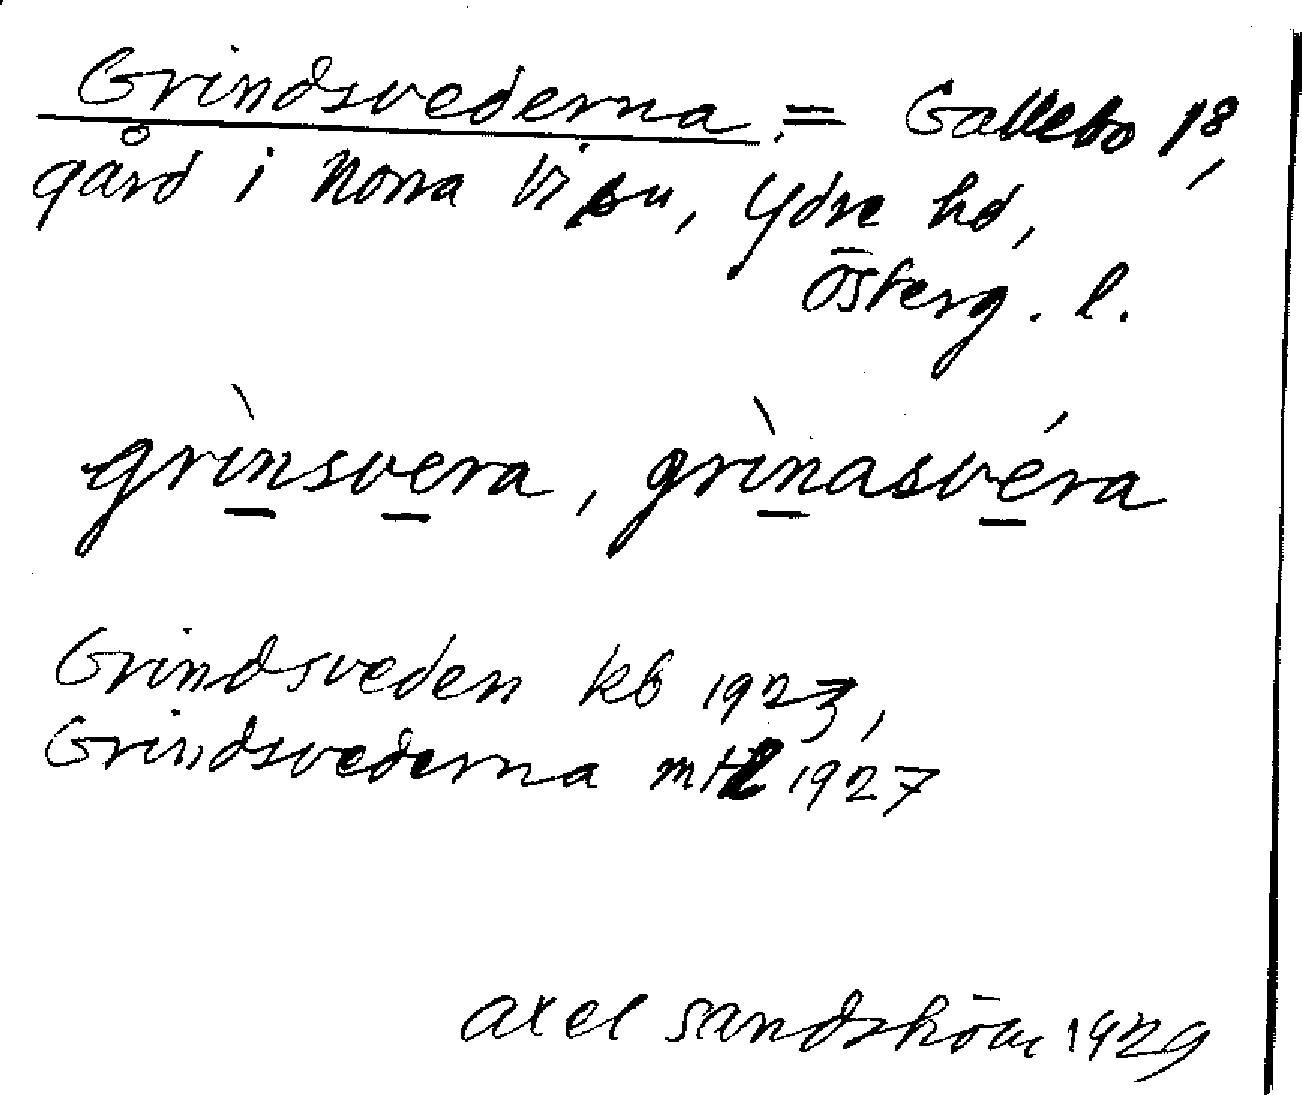 Grindsvederna = Gallebo 18,
gård i Norra Vi sn, Ydre hd,
Österg. l.
grìnsvera, grìnasvéra
Grindsveden kb 1923,
Grindsvederna mtl 1927
Axel Sandström 1929